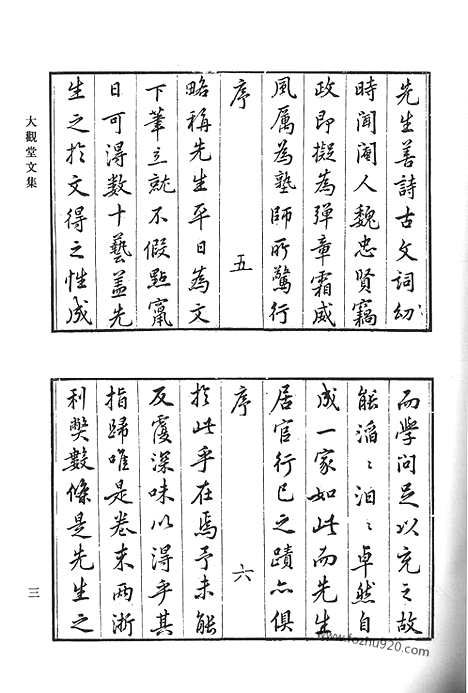 先生善詩古文詞幼
時聞閹人魏忠賢竊
政即擬為彈章霜威
風厲為塾師所驚行
序
五
略稱先生平日為文
下筆立就不假點竄
日可得数十藝盖先
生之於文得之性成
而學问足以充之故
能滔〻汩〻卓然自
成一家如此而先生
居官行己之蹟亦俱
序
六
於此乎在焉予未能
反覆深味以得乎其
指歸唯是卷末两浙
利弊數條是先生之
大觀堂文集
三
www.fozhu920.com